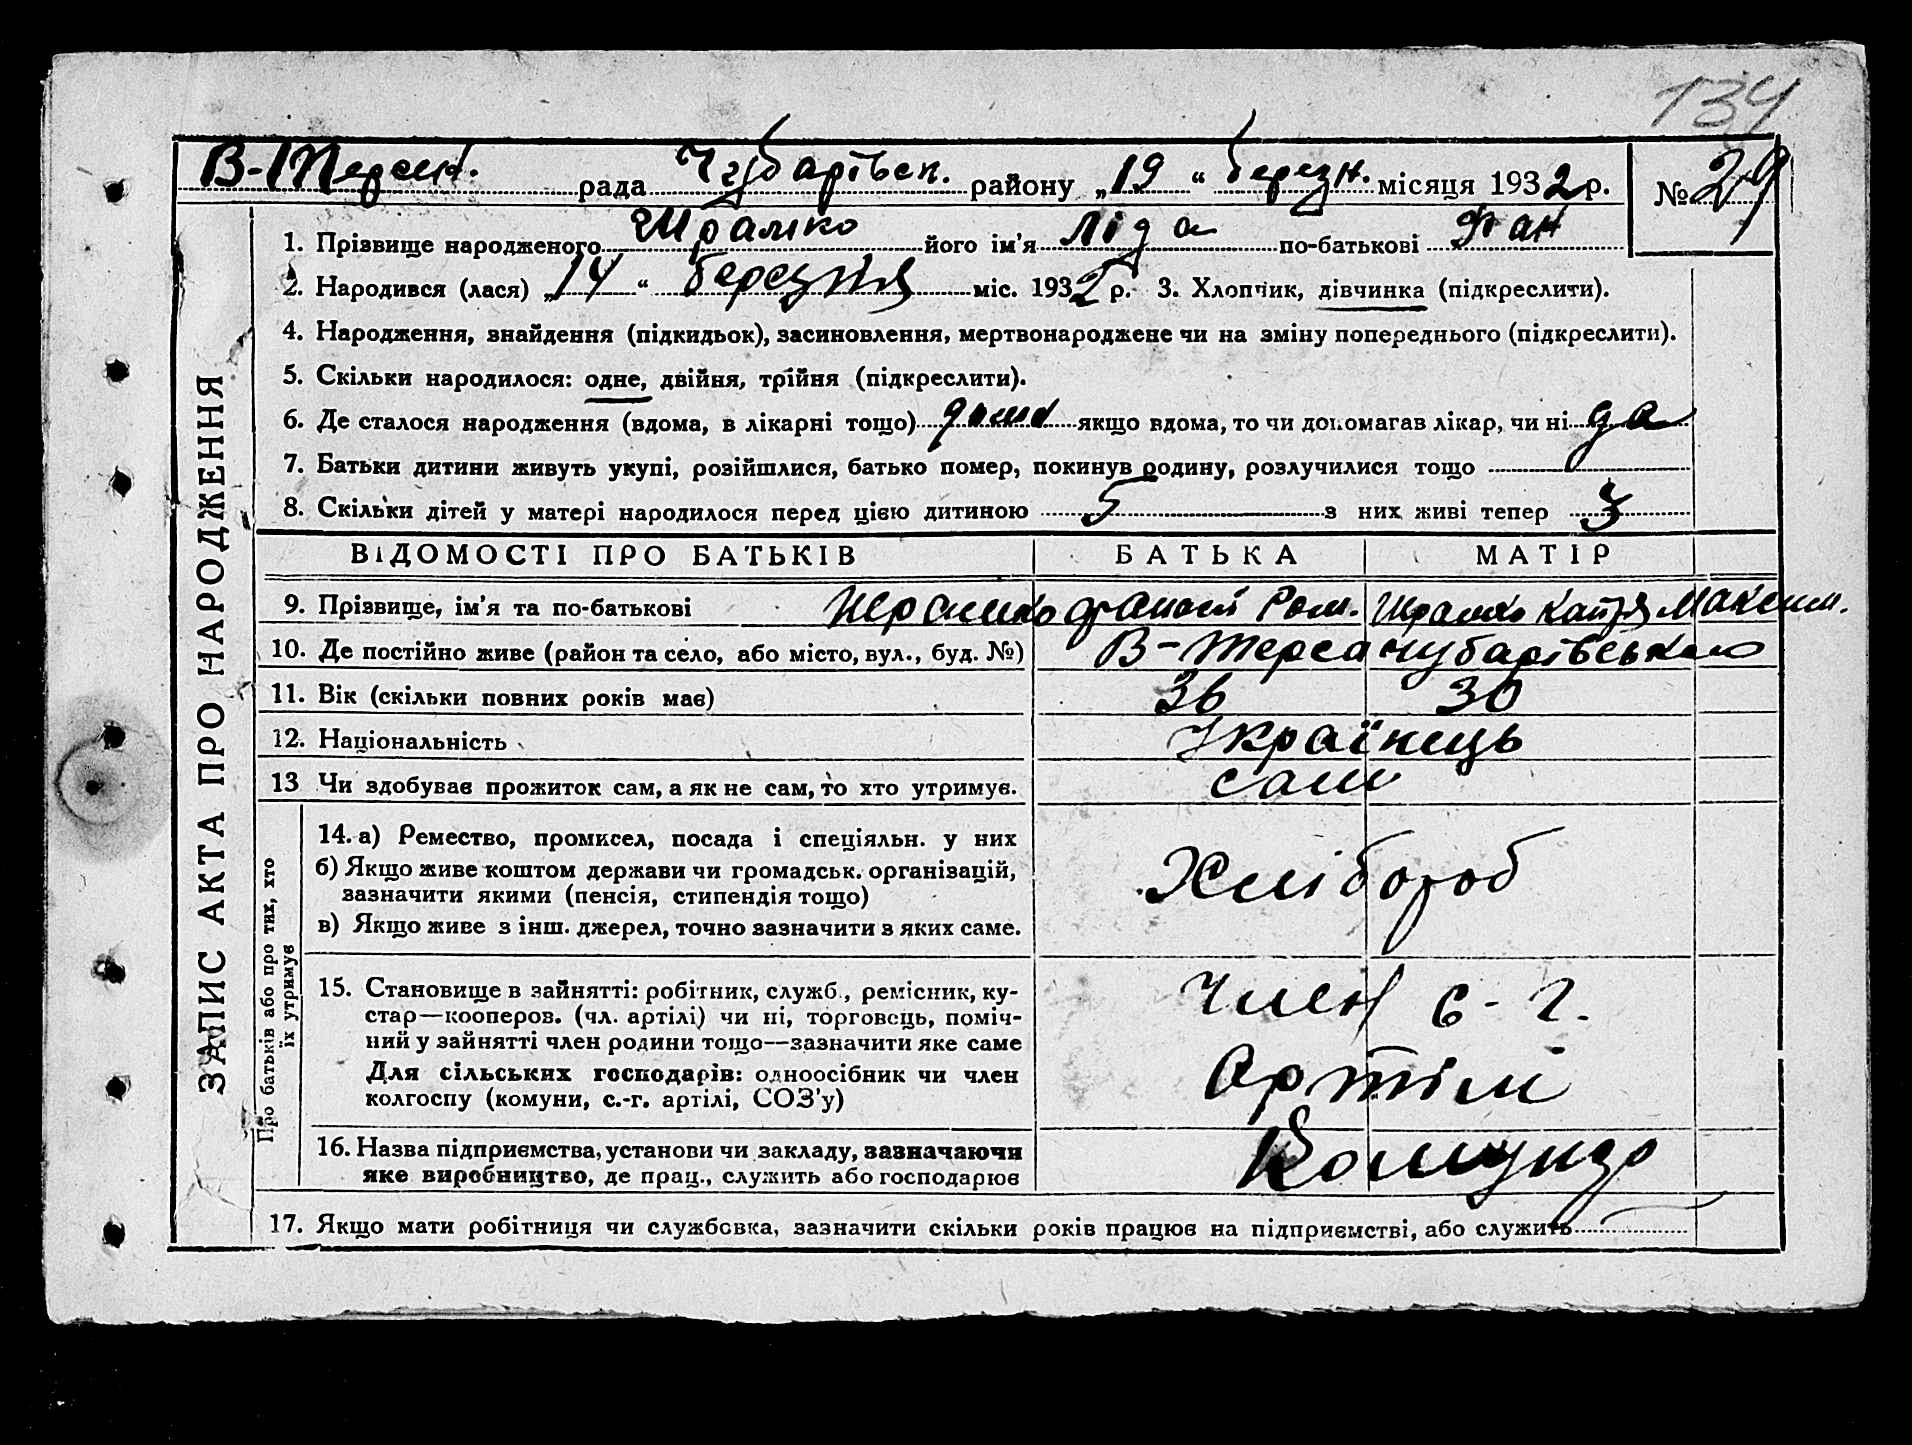 134
В-Терсян. рада Чубарівськ. району „19“ березн. місяця 1932 р. № 29
1. Прізвище народженого Шрамко його ім’я Ліда по-батькові Фан
2. Народився (лася) „14“ березня міс. 1932 р. 3. Хлопчик, дівчинка (підкреслити).
4. Народження, знайдення (підкидьок), засиновлення, мертвонароджене чи на зміну попереднього (підкреслити).
5. Скільки народилося: одне, двійня, трійня (підкреслити).
6. Де сталося народження (вдома, в лікарні тощо) дома якщо вдома, то чи допомагав лікар, чи ні да
7. Батьки дитини живуть укупі, розійшлися, батько помер, покинув родину, розлучилися тощо
8. Скільки дітей у матері народилося перед цією дитиною 5 з них живі тепер 3
ВІДОМОСТІ ПРО БАТЬКІВ БАТЬКА МАТІР
9. Прізвище, ім’я та по-батькові Шрамко Фанасій Ром. Шрамко Катря Максим.
10. Де постійно живе (район та село, або місто, вул., буд. №) В-Терса Чубарівського
11. Вік (скільки повних років має) 36 30
12. Національність Українець
13 Чи здобував прожиток сам, а як не сам, то хто утримує. сам
14. а) Ремество, промисел, посада і спеціяльн. у них
б) Якщо живе коштом держави чи громадськ. організацій,
зазначити якими (пенсія, стипендія тощо)
в) Якщо живе з інш. джерел, точно зазначити з яких саме.
Хлібороб
15. Становище в зайнятті: робітник, служб., ремісник, ку-
стар—кооперов. (чл. артілі) чи ні, торговець, поміч-
ний у зайнятті член родини тощо—зазначити яке саме
Для сільських господарів: одноосібник чи член
колгоспу (комуни, с.-г. артілі, СОЗ’у)
Член с-г.
Артілі
16. Назва підприємства, установи чи закладу, зазначаючи
яке виробництво, де прац., служить або господарює
17. Якщо мати робітниця чи службовка, зазначити скільки років працює на підприємстві, або служить
ЗАПИС АКТА ПРО НАРОДЖЕННЯ
Про батьків або про тих, хто
їх утримує